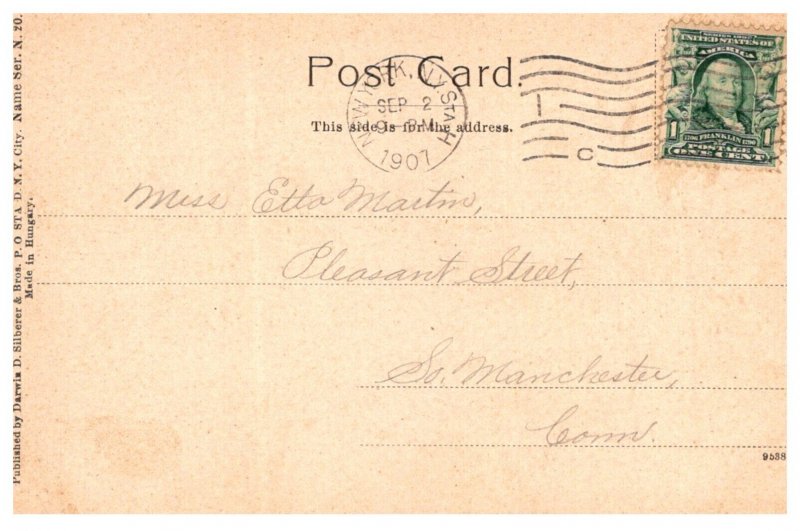 Post Card.
This side is for the address.
NEW YORK, N.Y. STA. H
SEP 2
9 - PM
1907
C
SERIES 1902
UNITED STATES OF
AMERICA
1 1
1706 FRANKLIN 1790
POSTAGE
ONE CENT
Miss Etta Martin,
Pleasant Street,
So. Manchester,
Conn.
9538
Published by Darwin D. Silberer & Bros. P.O STA D. N.Y. City. Name Ser. N. 20.
Made in Hungary.